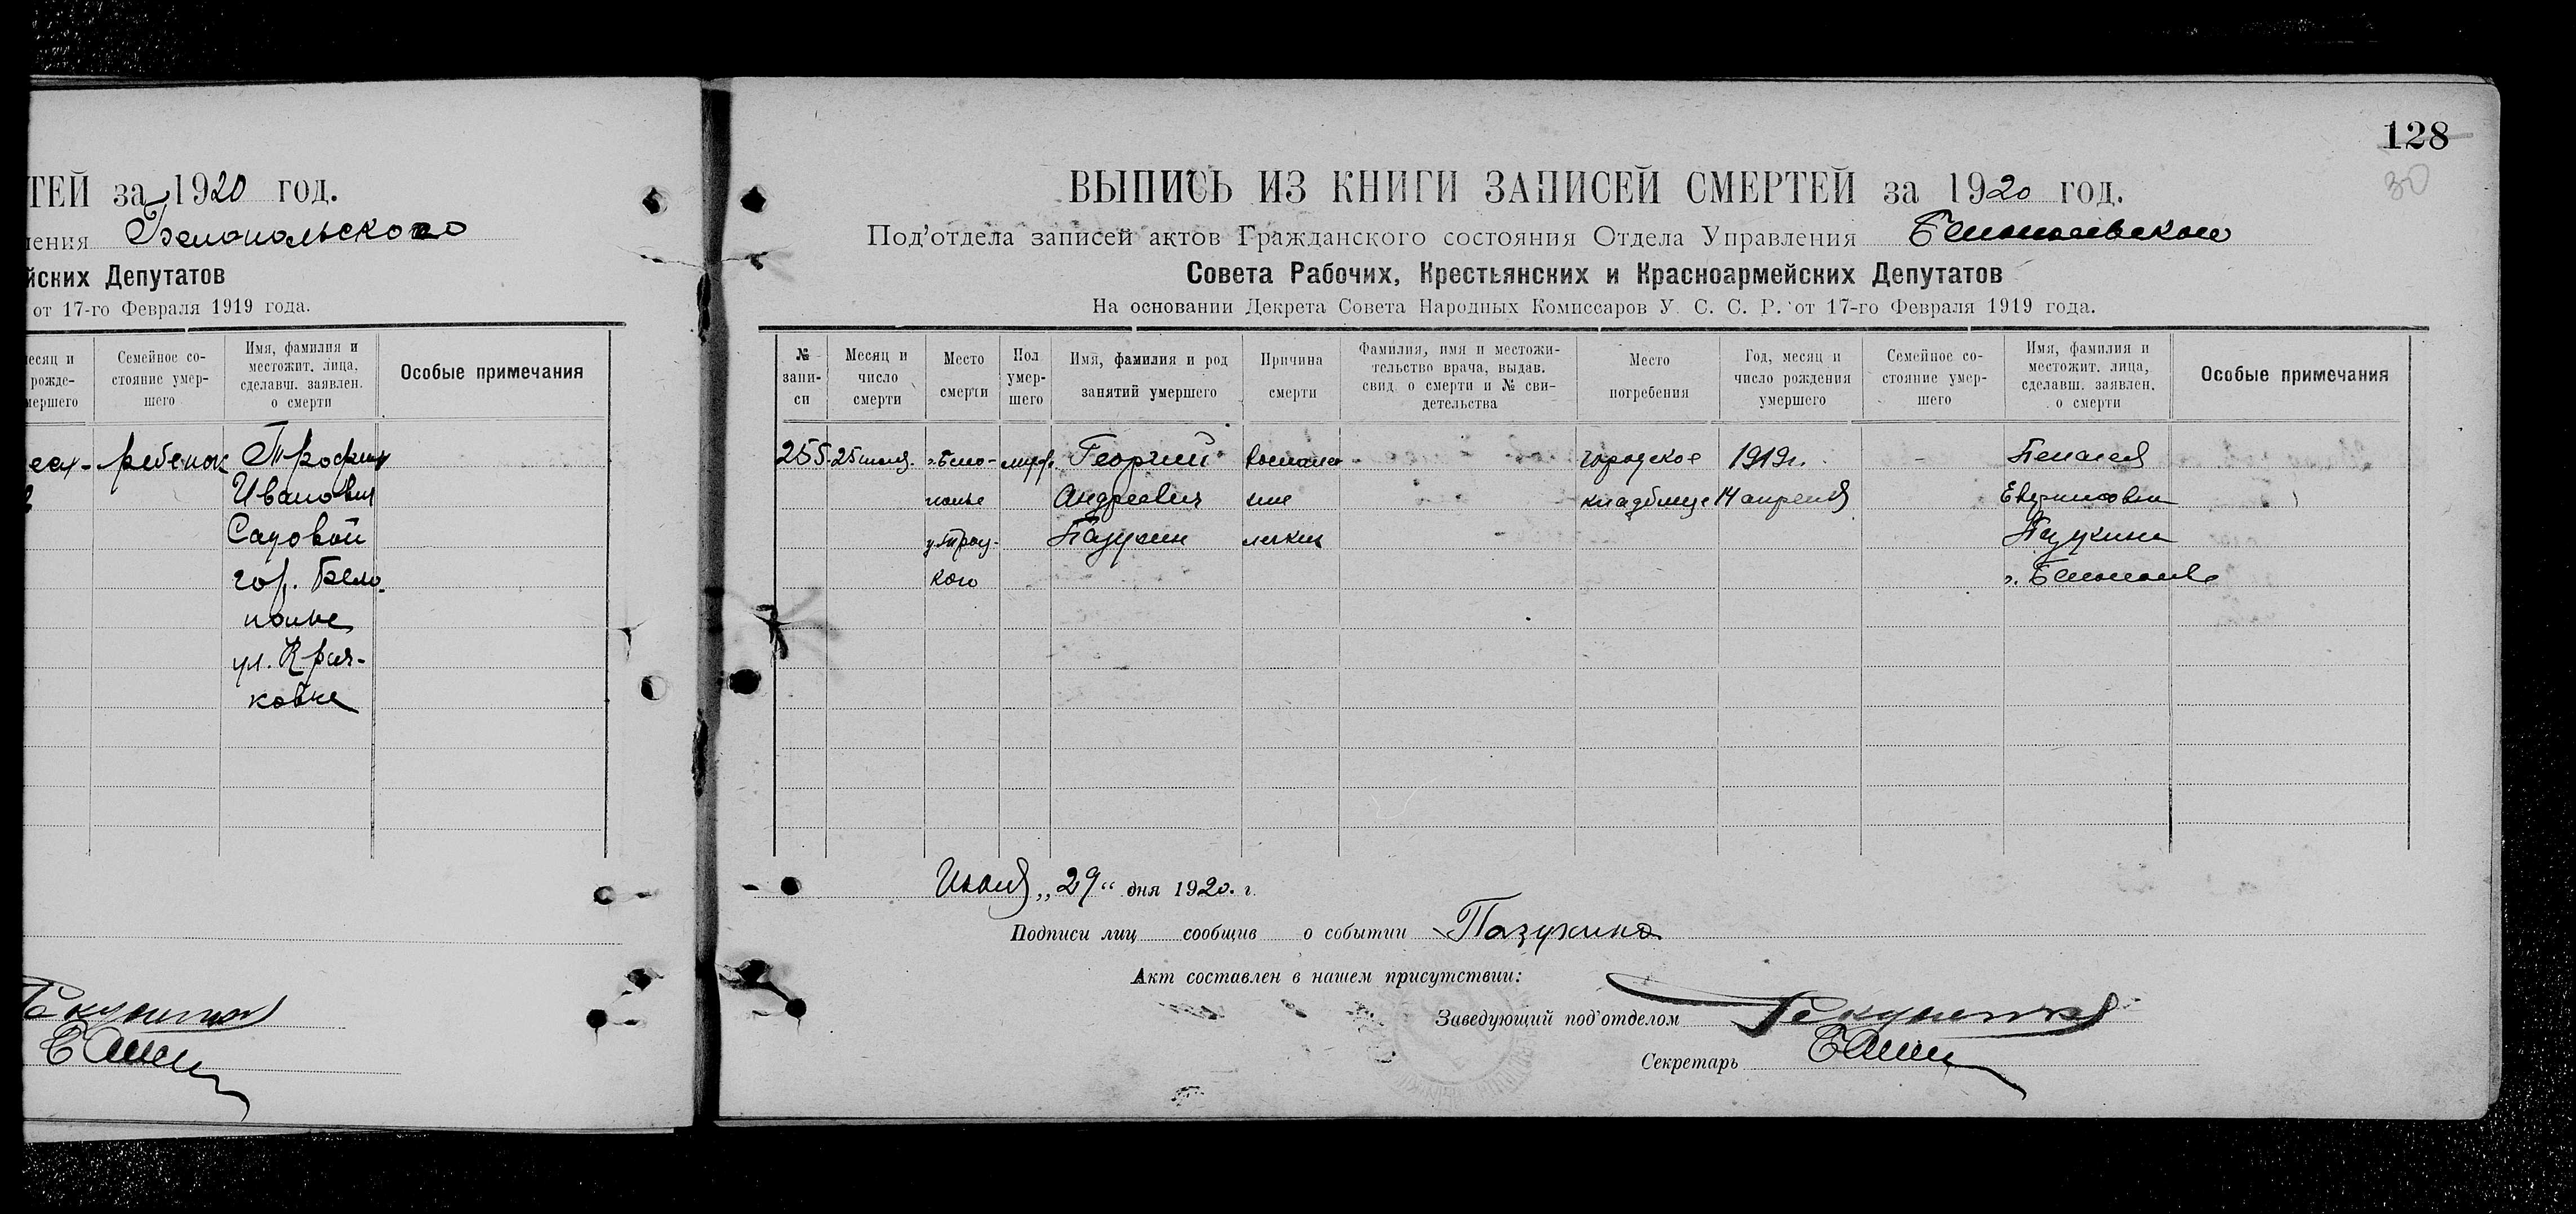 ТЕЙ за 1920 год.
ления Белопольского
йских Депутатов
от 17-го Февраля 1919 года.
есяц и
рожде-
мершего
Семейное со-
стояние умер-
шего
Имя, фамилия и
местожит. лица,
сделавш. заявлен.
о смерти
Особые примечания
ребенок
Трофим
Иванович
Садовой
гор. Бело-
полье
ул. Кряч-
ковке
128
30
ВЫПИСЬ ИЗ КНИГИ ЗАПИСЕЙ СМЕРТЕЙ за 1920 год.
Под'отдела записей актов Гражданского состояния Отдела Управления Белопольского
Совета Рабочих, Крестьянских и Красноармейских Депутатов
На основании Декрета Совета Народных Комиссаров У. С. С. Р. от 17-го Февраля 1919 года.
№
запи-
си
Месяц и
число
смерти
Место
смерти
Пол
умер-
шего
Имя, фамилия и род
занятий умершего
Причина
смерти
Фамилия, имя и местожи-
тельство врача, выдав.
свид. о смерти и № сви-
детельства
Место
погребения
Год, месяц и
число рождения
умершего
Семейное со-
стояние умер-
шего
Имя, фамилия и
местожит. лица,
сделавш. заявлен.
о смерти
Особые примечания
255
25 июля
г. Бело-
полье
у. Троц-
кого
Георгий
Андреевич
Пазухин
воспале-
ние
легких
-
городское
кладбище
1919 г.
14 апреля
-
Пелагея
Пазухина
г. Белополье
Июля „29“ дня 1920. г.
Подписи лиц сообщив о событии Пазухина
Акт составлен в нашем присутствии:
Заведующий под'отделом
Секретарь